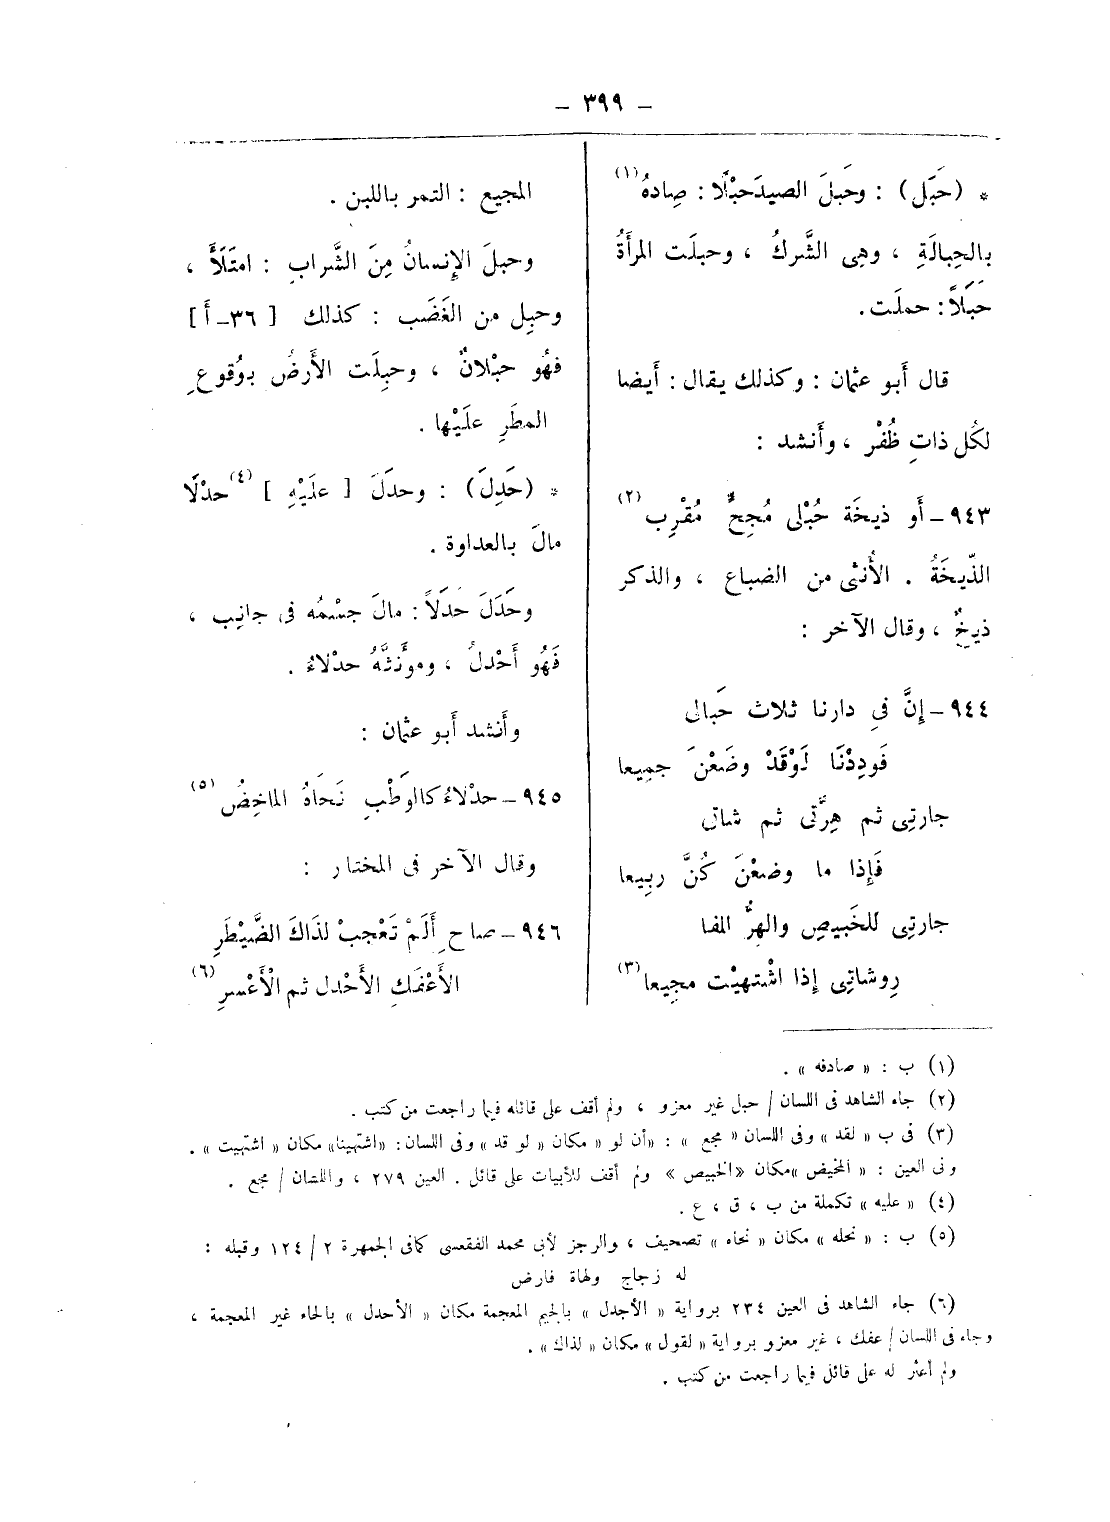 — ٣٩٩ —
* (حَبَل) : وحَبلَ الصيدَ حَبْلًا : صادهُ(١)
بالحِبالَةِ ، وهى الشَّركُ ، وحبلَت المرأَةُ
حَبَلًا : حملَت .
قال أَبو عثمان : وكذلك يقال : أَيضا
لكُل ذاتِ ظُفْر ، وأَنشد :
٩٤٣ – أَو ذيخَة حُبْلى مُجِحٌّ مُقْرِب(٢)
الذِّيخَةُ . الأُنثى من الضباع ، والذكر
ذيخٌ ، وقال الآخر :
٩٤٤ – إنَّ فى دارنا ثلاث حَبالى
فَودِدْنَا لَوْقَدْ وضَعْنَ جميعا
جارتِى ثم هِرَّتى ثم شاتى
فَإذا ما وضعْنَ كُنَّ ربيعا
جارتِى للخَبيصِ والهِرُّ للفا
رِوشاتِى إذا اشْتهيْت مجيعا(٣)
المجيع : التمر باللبن .
وحبلَ الإنسانُ مِنَ الشَّرابِ : امتَلَأَ ،
وحبِل من الغَضَب : كذلك [ ٣٦ – أ ]
فهُو حبْلانٌ ، وحبِلَت الأَرضُ بوُقوعِ
المطَرِ علَيْها .
* (حَدِلَ) : وحدَلَ [ علَيْهِ ](٤) حدْلًا
مالَ بالعداوة .
وحَدَلَ حَدَلًا : مالَ جسْمُه فى جانِب ،
فَهُو أَحْدلُ ، ومؤنثُهُ حدْلاءُ .
وأَنشد أَبو عثمان :
٩٤٥ – حدْلاءُ كالوَطْبِ نَحَاهُ الماخِضُ(٥)
وقال الآخر فى المختار :
٩٤٦ – صاح أَلَمْ تَعْجبْ لذَاكَ الضَّيْطَرِ
الأَعْفَكِ الأَحْدل ثم الْأَعْسرِ(٦)
(١) ب : « صادفه » .
(٢) جاء الشاهد فى اللسان / حبل غير معزو ، ولم أقف على قائله فيما راجعت من كتب .
(٣) فى ب « لقد » وفى اللسان « مجع » : «أن لو » مكان « لو قد » وفى اللسان : «اشتهينا» مكان « اشتهيت » .
وفى العين : « المخيض » مكان «الخبيص » ولم أقف للأبيات على قائل . العين ٢٧٩ ، واللسان / مجع .
(٤) « عليه » تكملة من ب ، ق ، ع .
(٥) ب : « نحله » مكان « نحاه » تصحيف ، والرجز لأبى محمد الفقعسى كما فى الجمهرة ٢ / ١٢٤ وقبله :
له زجاج ولهاة فارض
(٦) جاء الشاهد فى العين ٢٣٤ برواية « الأجدل » بالجيم المعجمة مكان « الأحدل » بالحاء غير المعجمة ،
وجاء فى اللسان / عفك ، غير معزو برواية « لقول » مكان « لذاك » .
ولم أعثر له على قائل فيما راجعت من كتب .